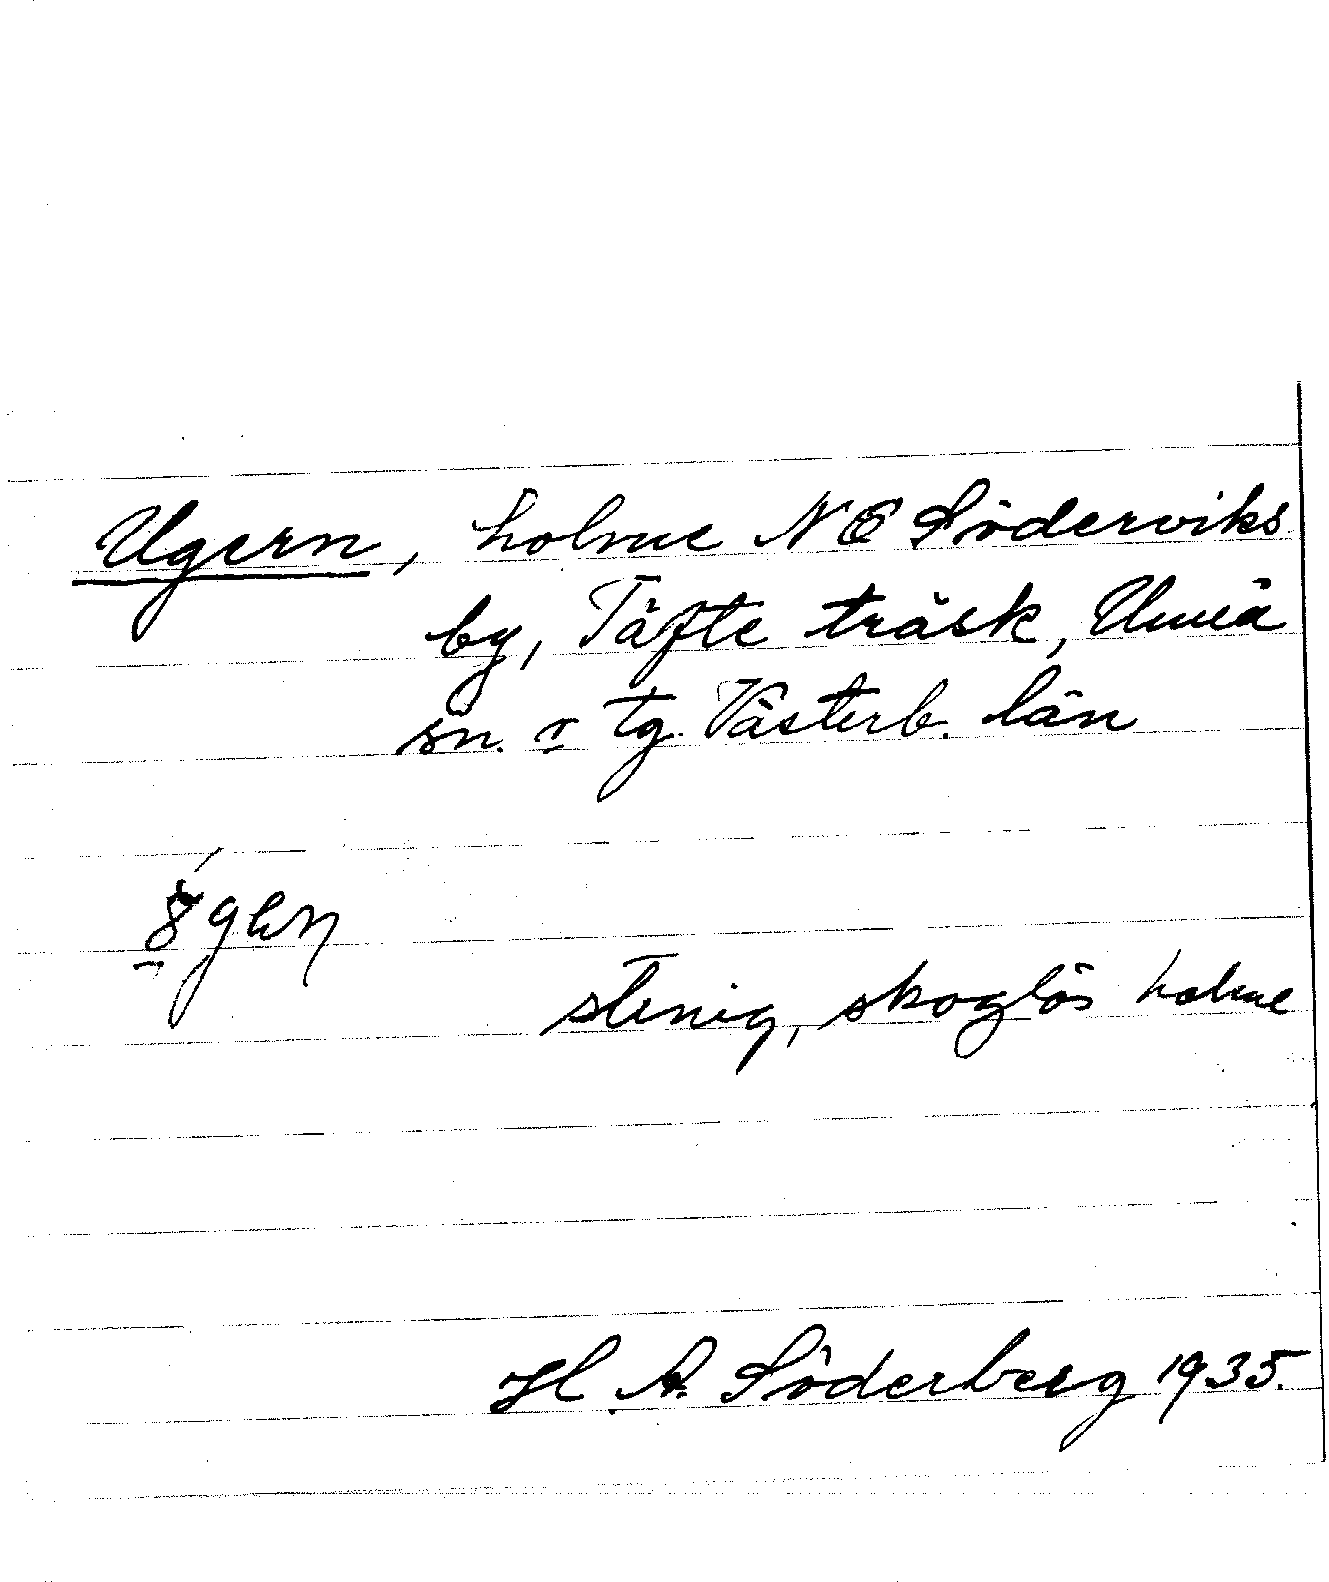 Ugern, holme NO Söderviks
by, Täfte träsk, Umeå
sn. o tg. Västerb. län
stenig, skoglös holme
H. A. Söderberg 1935.